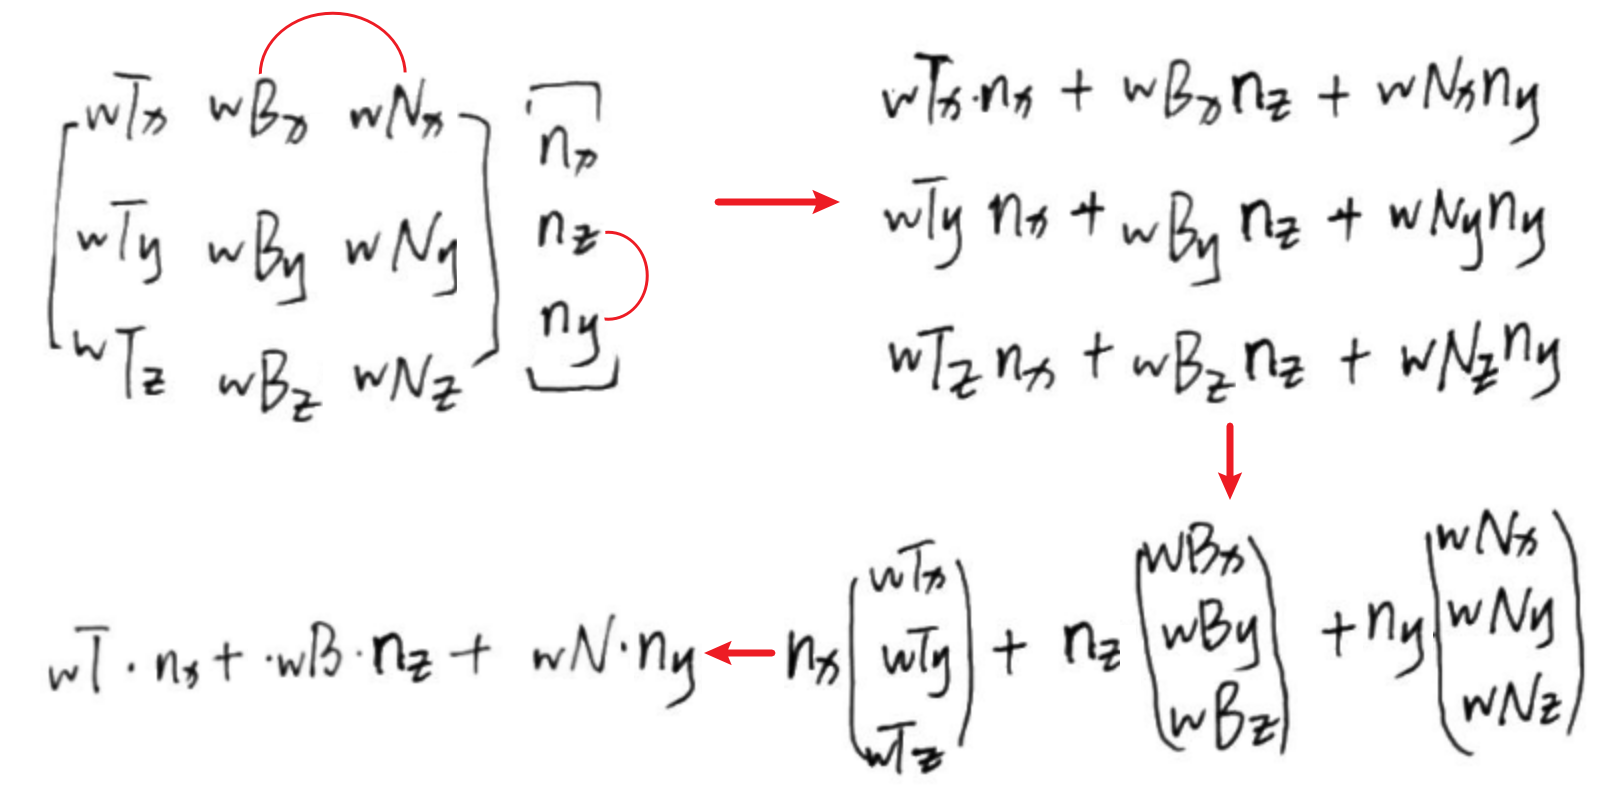 wTx wBx wNx
wTy wBy wNy
wTz wBz wNz
nx
nz
ny
wTx·nx + wBx nz + wNx ny
wTy nx + wBy nz + wNy ny
wTz nx + wBz nz + wNz ny
nx (wTx wTy wTz) + nz (wBx wBy wBz) + ny (wNx wNy wNz)
wT · nx + ·wB · nz + wN · ny